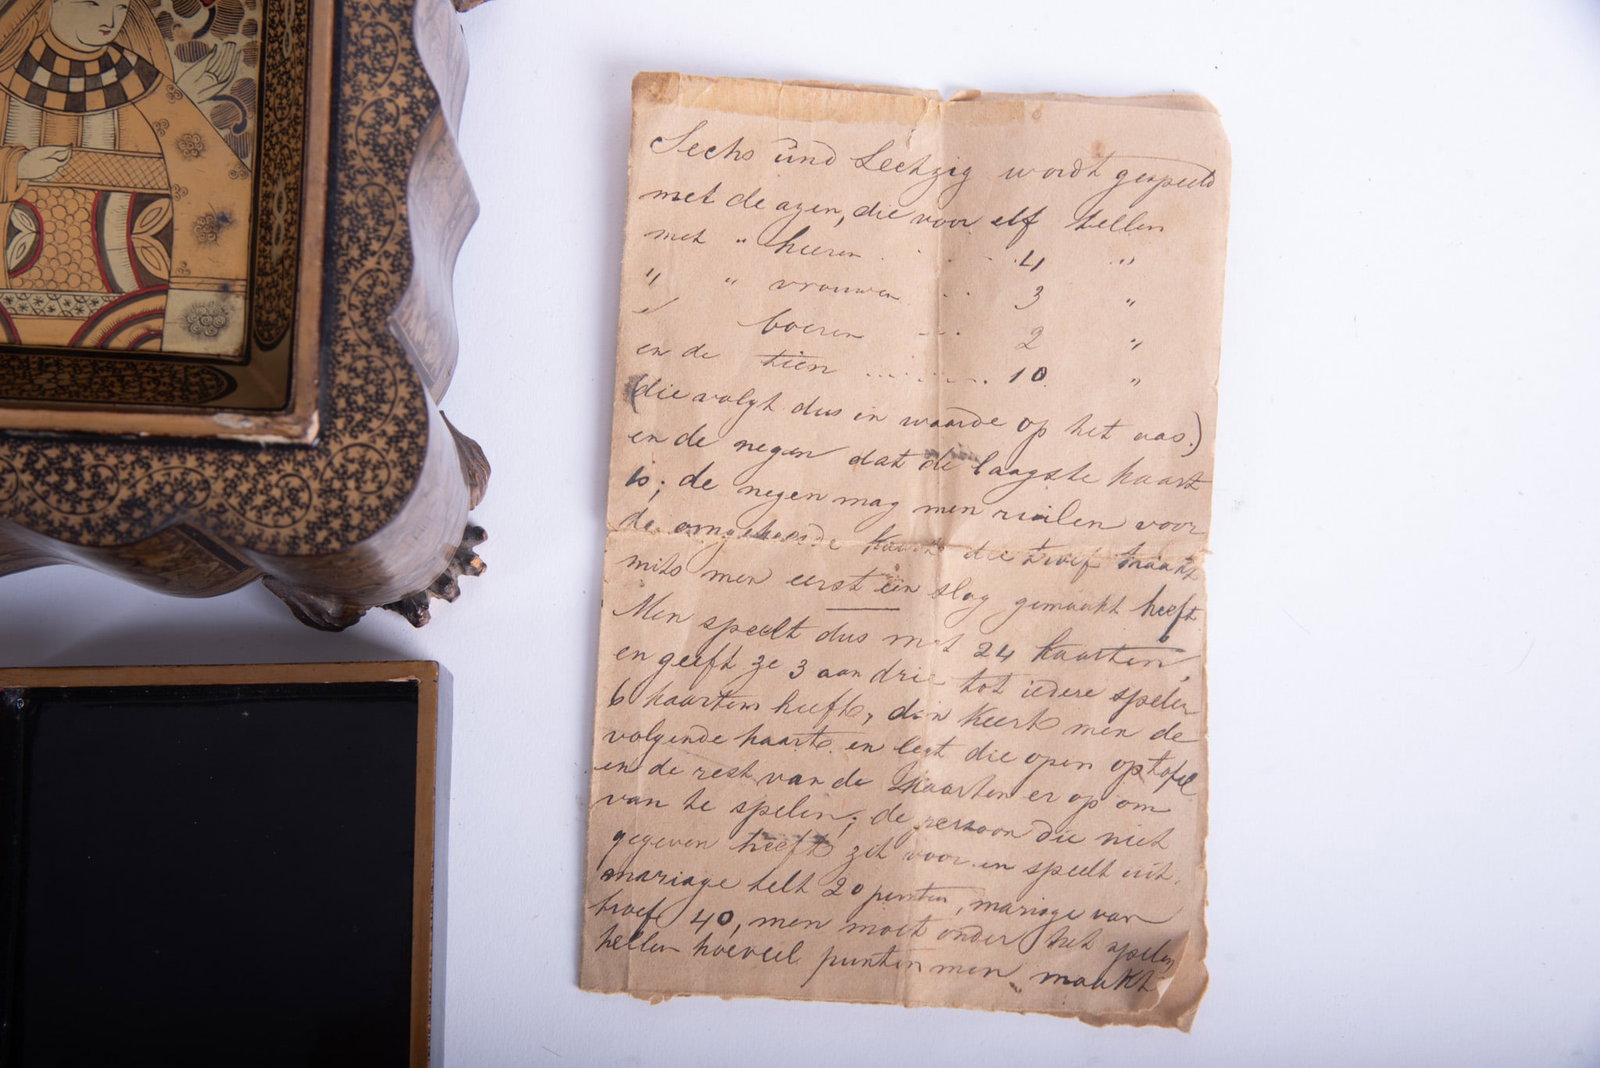 Sechs und Sechzig wordt gespeeld
met de azen, die voor elf tellen
met " heeren . . . . . 4 "
" " vrouwen . . . 3 "
" boeren . . . 2 "
en de tien . . . . . . . 10 "
(die volgt dus in waarde op het aas.)
en de negen dat de laagste kaart
is; de negen mag men ruilen voor
de omgekeerde kaart die troef maakt
mits men eerst een slag gemaakt heeft
Men speelt dus met 24 kaarten,
en geeft ze 3 aan drie tot iedere speler
6 kaarten heeft, dan keert men de
volgende kaart en legt die open op tafel
en de rest van de kaarten er op om
van te spelen; de persoon die niet
gegeven heeft zit voor en speelt uit.
mariage telt 20 punten, mariage van
troef 40, men moet onder het spelen
tellen hoeveel punten men maakt